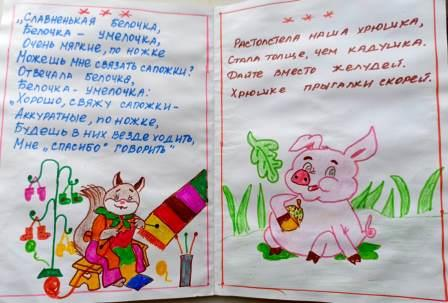 * * *
„Славненькая белочка,
Белочка - умелочка,
Очень мягкие, по ножке
Можешь мне связать сапожки?
Отвечала белочка,
Белочка - умелочка:
„Хорошо, свяжу сапожки -
Аккуратные, по ножке,
Будешь в них везде ходить,
Мне „спасибо" говорить"
* * *
Растолстела наша хрюшка,
Стала толще, чем кадушка.
Дайте вместо желудей.
Хрюшке прыгалки скорей.